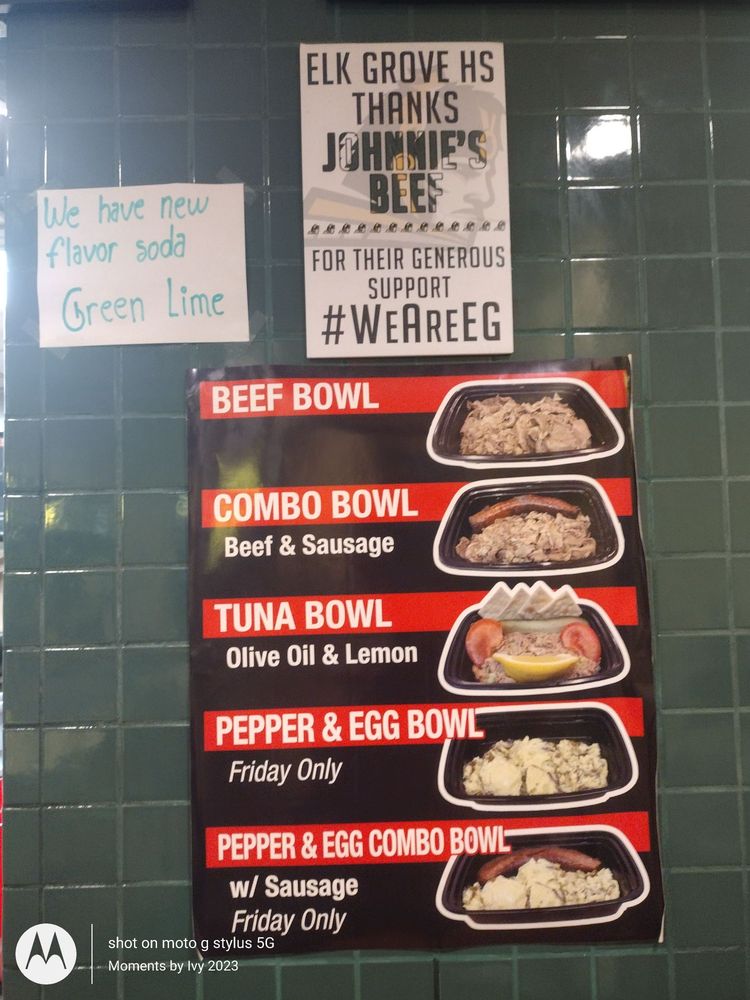 ELK GROVE HS
THANKS
JOHNNIE'S
BEEF
FOR THEIR GENEROUS
SUPPORT
#WEAREEG
We have new
flavor soda
Green Lime
BEEF BOWL
COMBO BOWL
Beef & Sausage
TUNA BOWL
Olive Oil & Lemon
PEPPER & EGG BOWL
Friday Only
PEPPER & EGG COMBO BOWL
w/ Sausage
Friday Only
shot on moto g stylus 5G
Moments by Ivy 2023